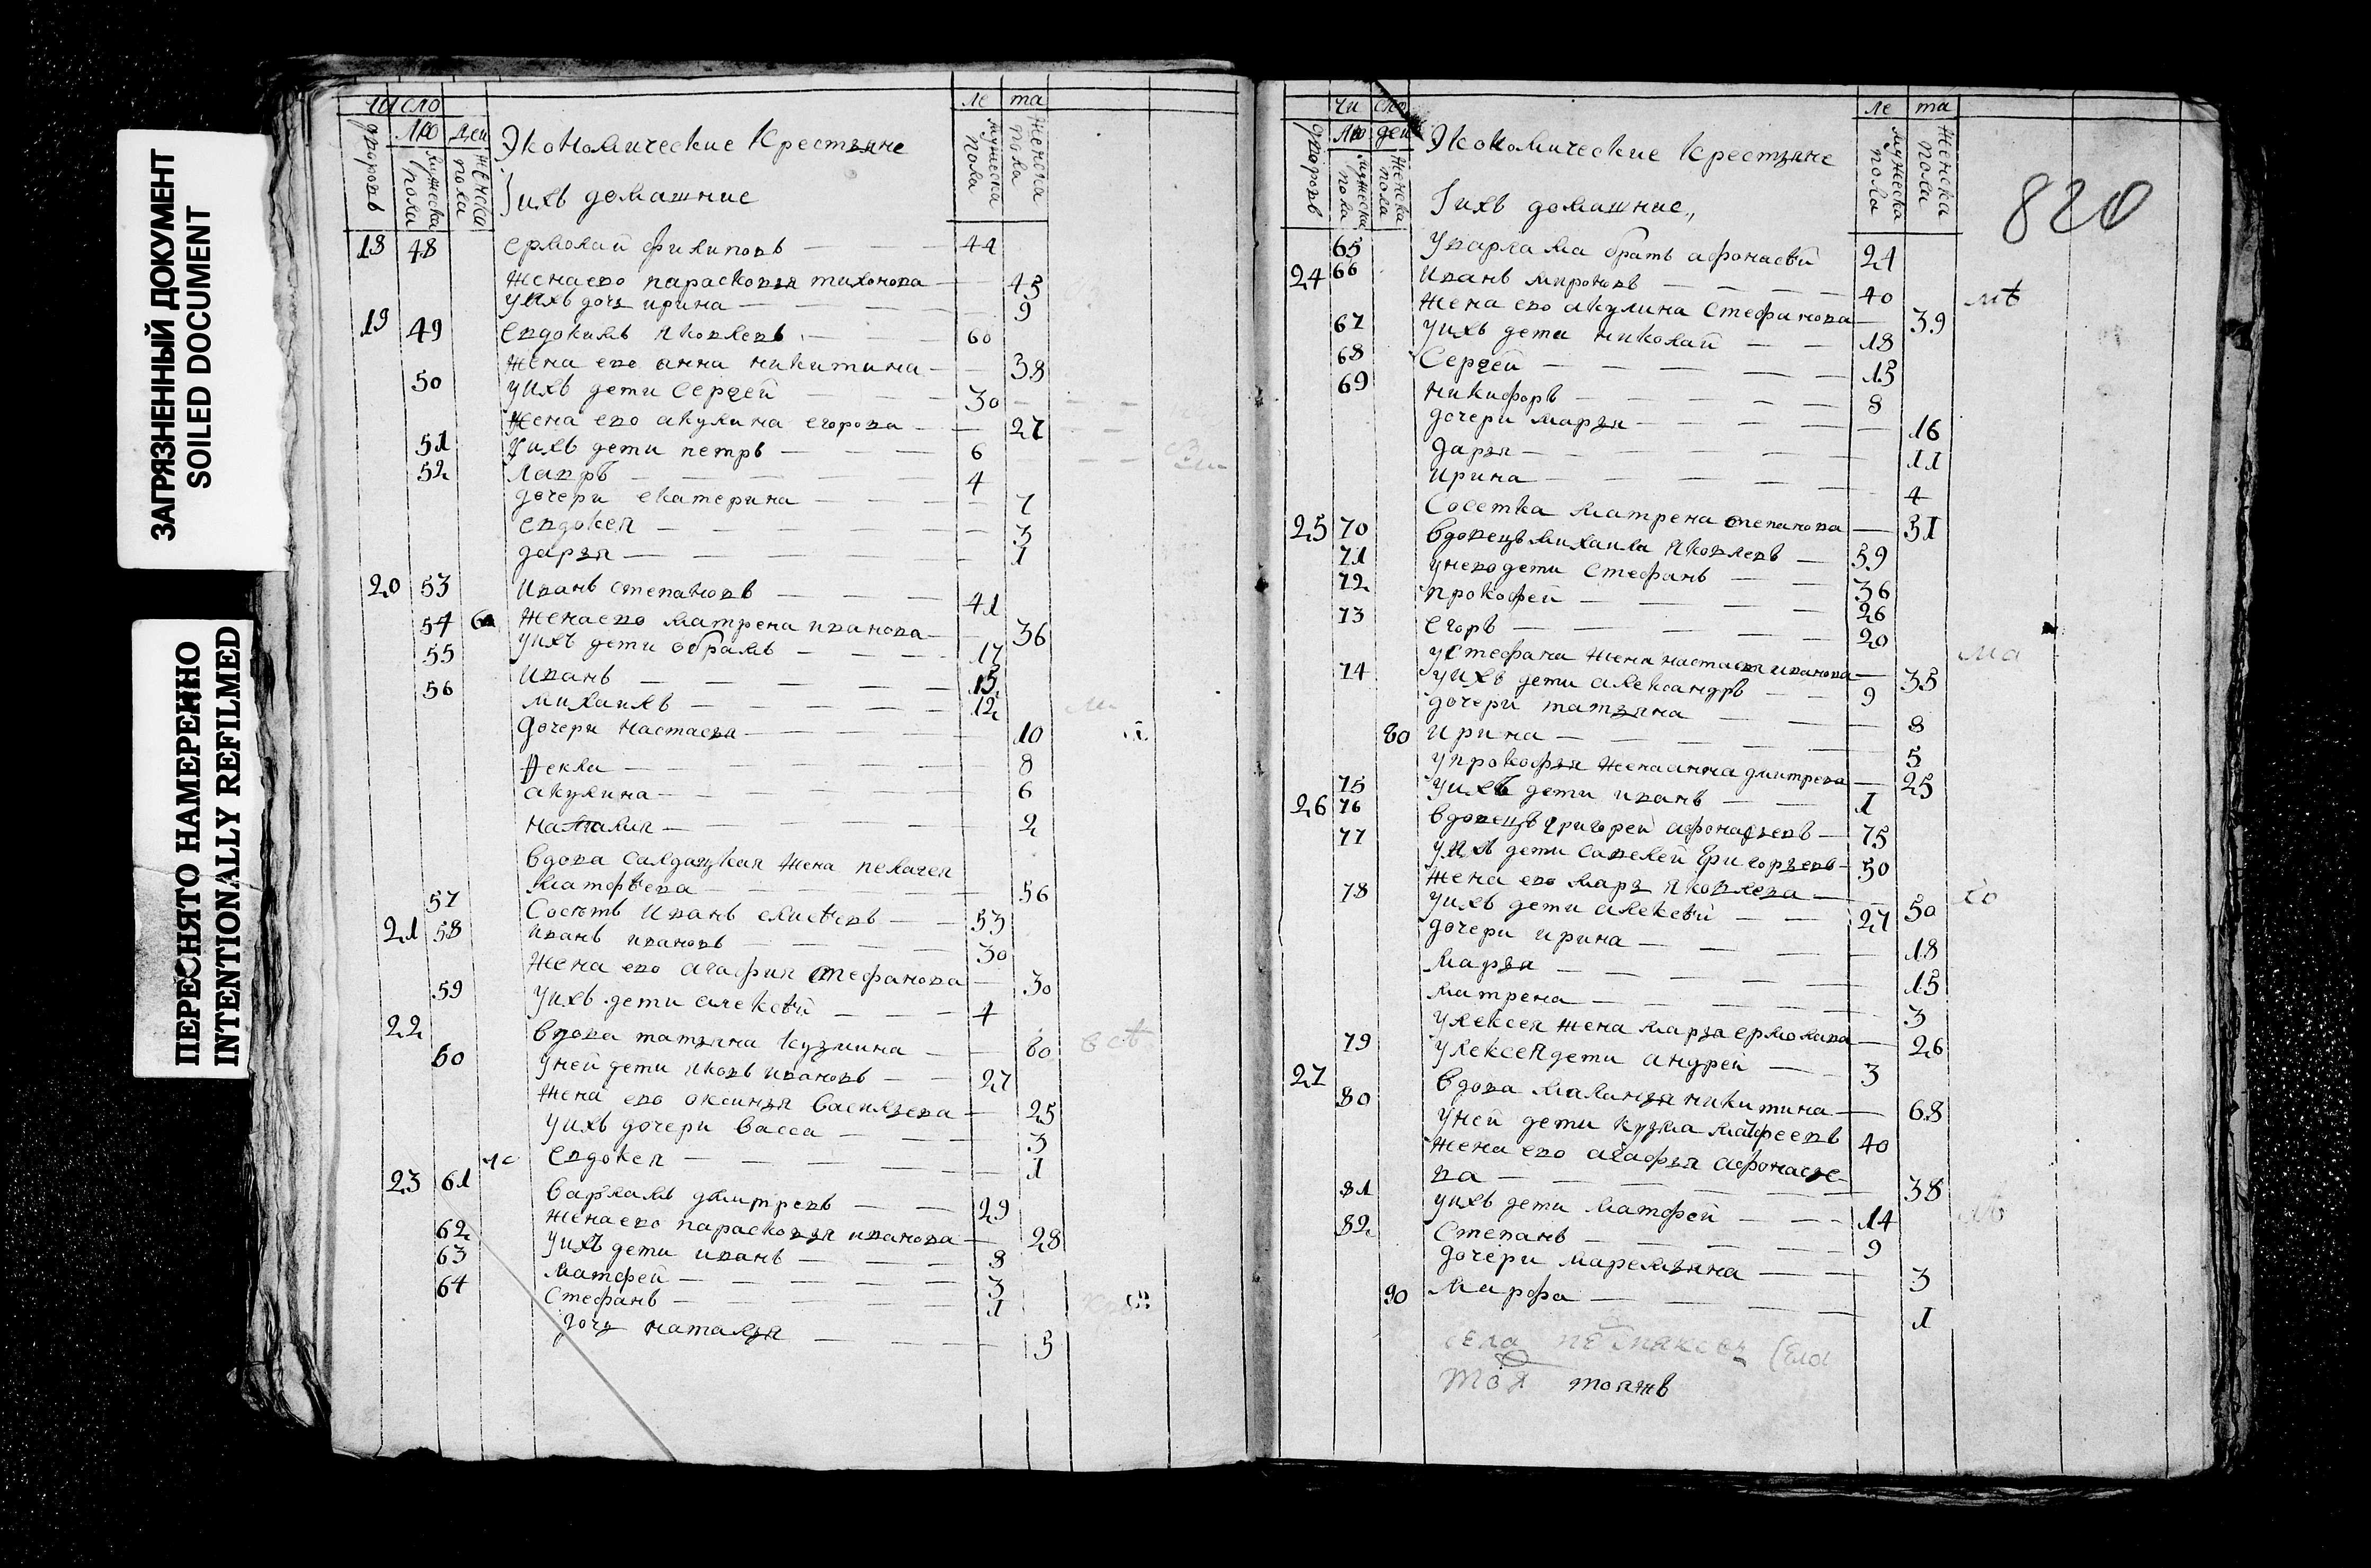 ЗАГРЯЗНЕННЫЙ ДОКУМЕНТ
SOILED DOCUMENT
ПЕРЕСНЯТО НАМЕРЕННО
INTENTIONALLY REFILMED
число ле та
дворовъ лю дей мужеска пола женска пола Экономические Крестьяне мужеска пола женска пола
Iихъ домашние
18 48 ермолай филиповъ 44
жена ево парасковья тихонова 45
у ихъ дочь ирина 9
19 49 евдокимъ яковлевъ 60
жена ево анна никитина 38
50 у ихъ дети Сергей 30
жена ево акулина егорова 27
51 у ихъ дети петръ 6
52 лавръ 4
дочери екатерина 7
евдокея 3
дарья 1
20 53 иванъ степановъ 41
жена ево матрена иванова 36
54 60 у ихъ дети обрамъ 17
55 иванъ 15
56 михаилъ 12
дочери настасья 10
Фекла 8
акулина 6
наталия 2
вдова салдацкая жена пелагея
матфѣева 56
57 Сосѣтъ иванъ 53
21 58 иванъ ивановъ 30
жена ево агафия стефанова 30
59 у ихъ дети алексѣй 4
22 вдова татьяна кузмина 60
60 у ней дети яковъ ивановъ 27
жена ево оксинья васильева 25
у ихъ дочери васса 3
евдокея 1
23 61 варламъ дмитревъ 29
жена ево парасковья иванова 28
62 у ихъ дети иванъ 8
63 матфей 3
64 стефанъ 1
дочь наталья 5
чи сло ле та
дворовъ лю дей мужеска пола женска пола Экономические Крестьяне мужеска пола женска пола
Iихъ домашние,
820
65 у варлама братъ афонасѣй 24
24 66 иванъ мироновъ 40
жена ево акулина стефанова 39
67 у ихъ дети николай 18
68 Сергей 15
69 никифоръ 8
дочери марья 16
дарья 11
ирина 4
Сосетка матрена степанова 31
25 70 вдовецъ михаила яковлевъ 59
71 у нево дети стефанъ 36
72 прокофей 26
73 егоръ 20
у стефана жена настасья иванова 35
74 у ихъ дети александръ 9
дочери татьяна 8
80 ирина 5
у прокофья жена анна дмитрева 25
75 у ихъ дети иванъ 1
26 76 вдовецъ григорей афонасьевъ 75
77 у ихъ дети савелей григорьевъ 50
жена ево марья яковлева 50
78 у ихъ дети алексѣй 27
дочери ирина 18
марья 15
матрена 3
у алексея жена марья ермолаева 26
79 у алексея дети андрей 3
27 вдова маланья никитина 68
80 у ней дети кузма матфеевъ 40
жена ево агафья афонасье-
ва 38
81 у ихъ дети матфей 14
82 Степанъ 9
дочери маремьяна 3
90 марфа 1
села
тоя тоянъ